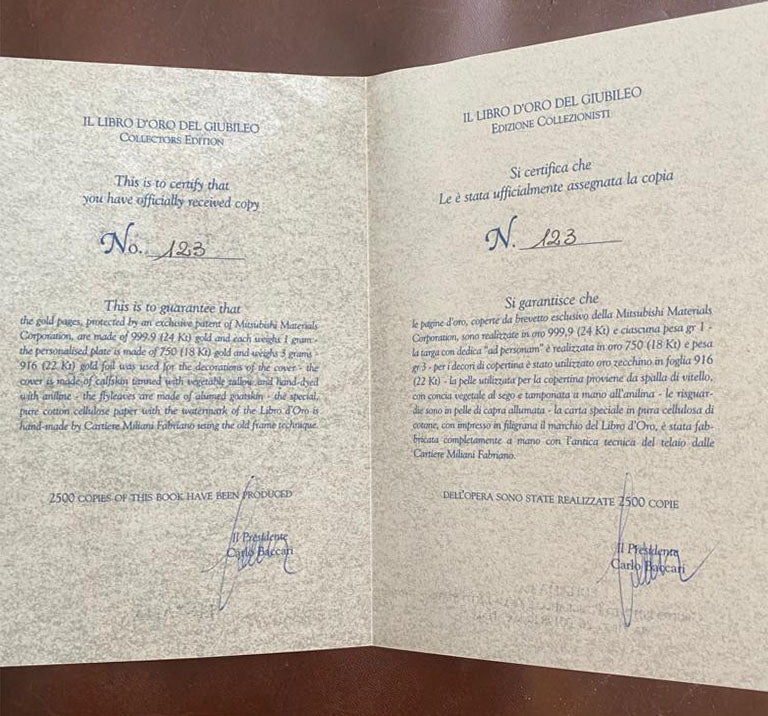 IL LIBRO D'ORO DEL GIUBILEO
COLLECTORS EDITION
This is to certify that
you have officially received copy
No. 123
This is to guarantee that
the gold pages, protected by an exclusive patent of Mitsubishi Materials
Corporation, are made of 999.9 (24 Kt) gold and each weighs 1 gram -
the personalised plate is made of 750 (18 Kt) gold and weighs 3 grams -
916 (22 Kt) gold foil was used for the decorations of the cover - the
cover is made of calfskin tanned with vegetable tallow and hand-dyed
with aniline - the flyleaves are made of alumed goatskin - the special,
pure cotton cellulose paper with the watermark of the Libro d'Oro is
hand-made by Cartiere Miliani Fabriano using the old frame technique.
2500 COPIES OF THIS BOOK HAVE BEEN PRODUCED
Il Presidente
Carlo Baccari
IL LIBRO D'ORO DEL GIUBILEO
EDIZIONE COLLEZIONISTI
Si certifica che
Le è stata ufficialmente assegnata la copia
N. 123
Si garantisce che
le pagine d'oro, coperte da brevetto esclusivo della Mitsubishi Materials
Corporation, sono realizzate in oro 999,9 (24 Kt) e ciascuna pesa gr 1 -
la targa con dedica "ad personam" è realizzata in oro 750 (18 Kt) e pesa
gr 3 - per i decori di copertina è stato utilizzato oro zecchino in foglia 916
(22 Kt) - la pelle utilizzata per la copertina proviene da spalla di vitello,
con concia vegetale al sego e tamponata a mano all'anilina - le risguar-
die sono in pelle di capra allumata - la carta speciale in pura cellulosa di
cotone, con impresso in filigrana il marchio del Libro d'Oro, è stata fab-
bricata completamente a mano con l'antica tecnica del telaio dalle
Cartiere Miliani Fabriano.
DELL'OPERA SONO STATE REALIZZATE 2500 COPIE
Il Presidente
Carlo Baccari